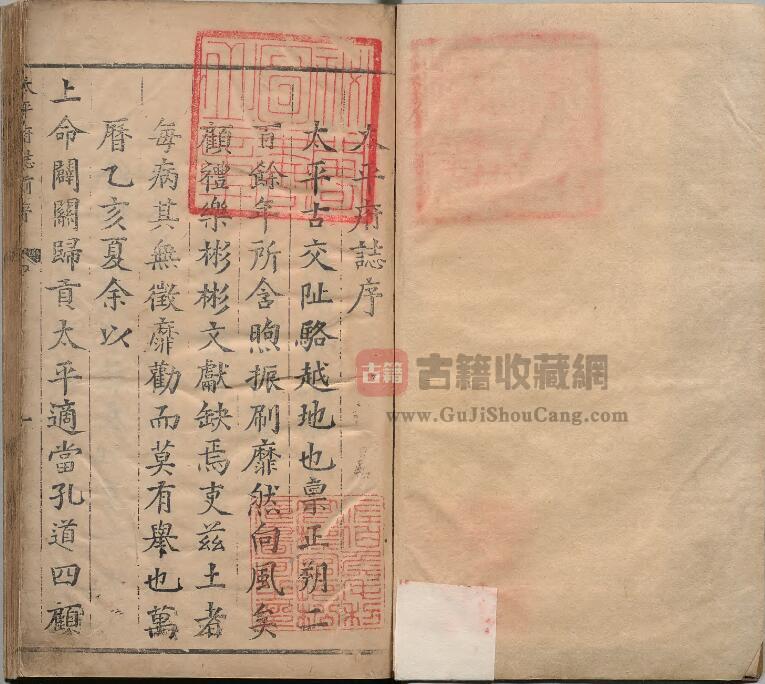 太平府誌序
太平古交阯駱越地也稟正朔二
百餘年所含煦振刷靡然向風矣
顧禮樂彬彬文獻缺焉吏兹土者
每病其無徵靡勸而莫有舉也萬
曆乙亥夏余以
上命闢關歸貢太平適當孔道四顧
太平府誌前序
一
古籍
古籍收藏網
www.GuJiShouCang.com